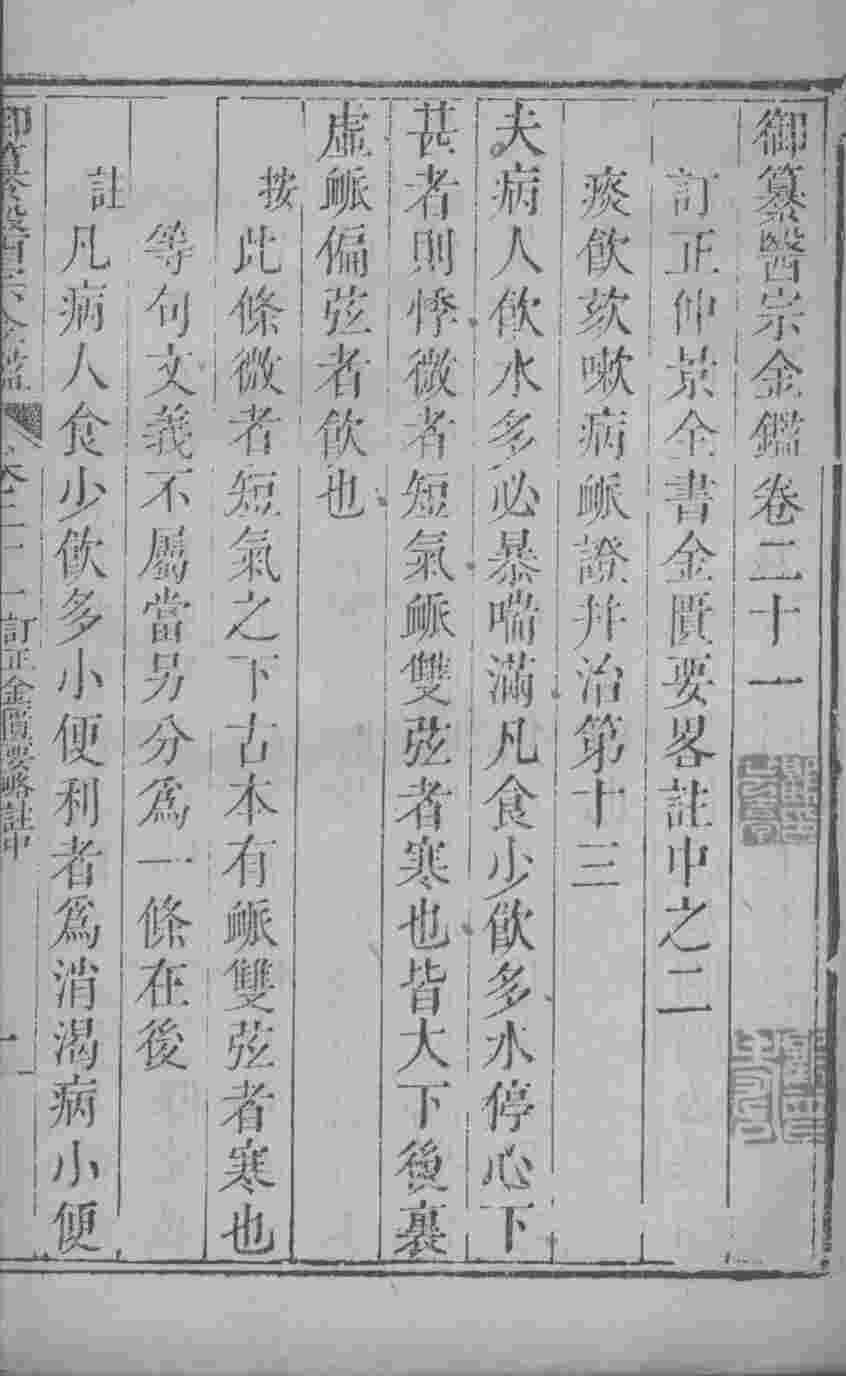 御纂醫宗金鑑卷二十一
訂正仲景全書金匱要畧註中之二
痰飲欬嗽病脈證并治第十三
夫病人飲水多必暴喘滿凡食少飲多水停心下
甚者則悸微者短氣脈雙弦者寒也皆大下後裏
虛脈偏弦者飲也
按此條微者短氣之下古本有脈雙弦者寒也
等句文義不屬當另分爲一條在後
註凡病人食少飲多小便利者爲消渴病小便
御纂醫宗金鑑 卷二十一 訂正金匱要略註中 一